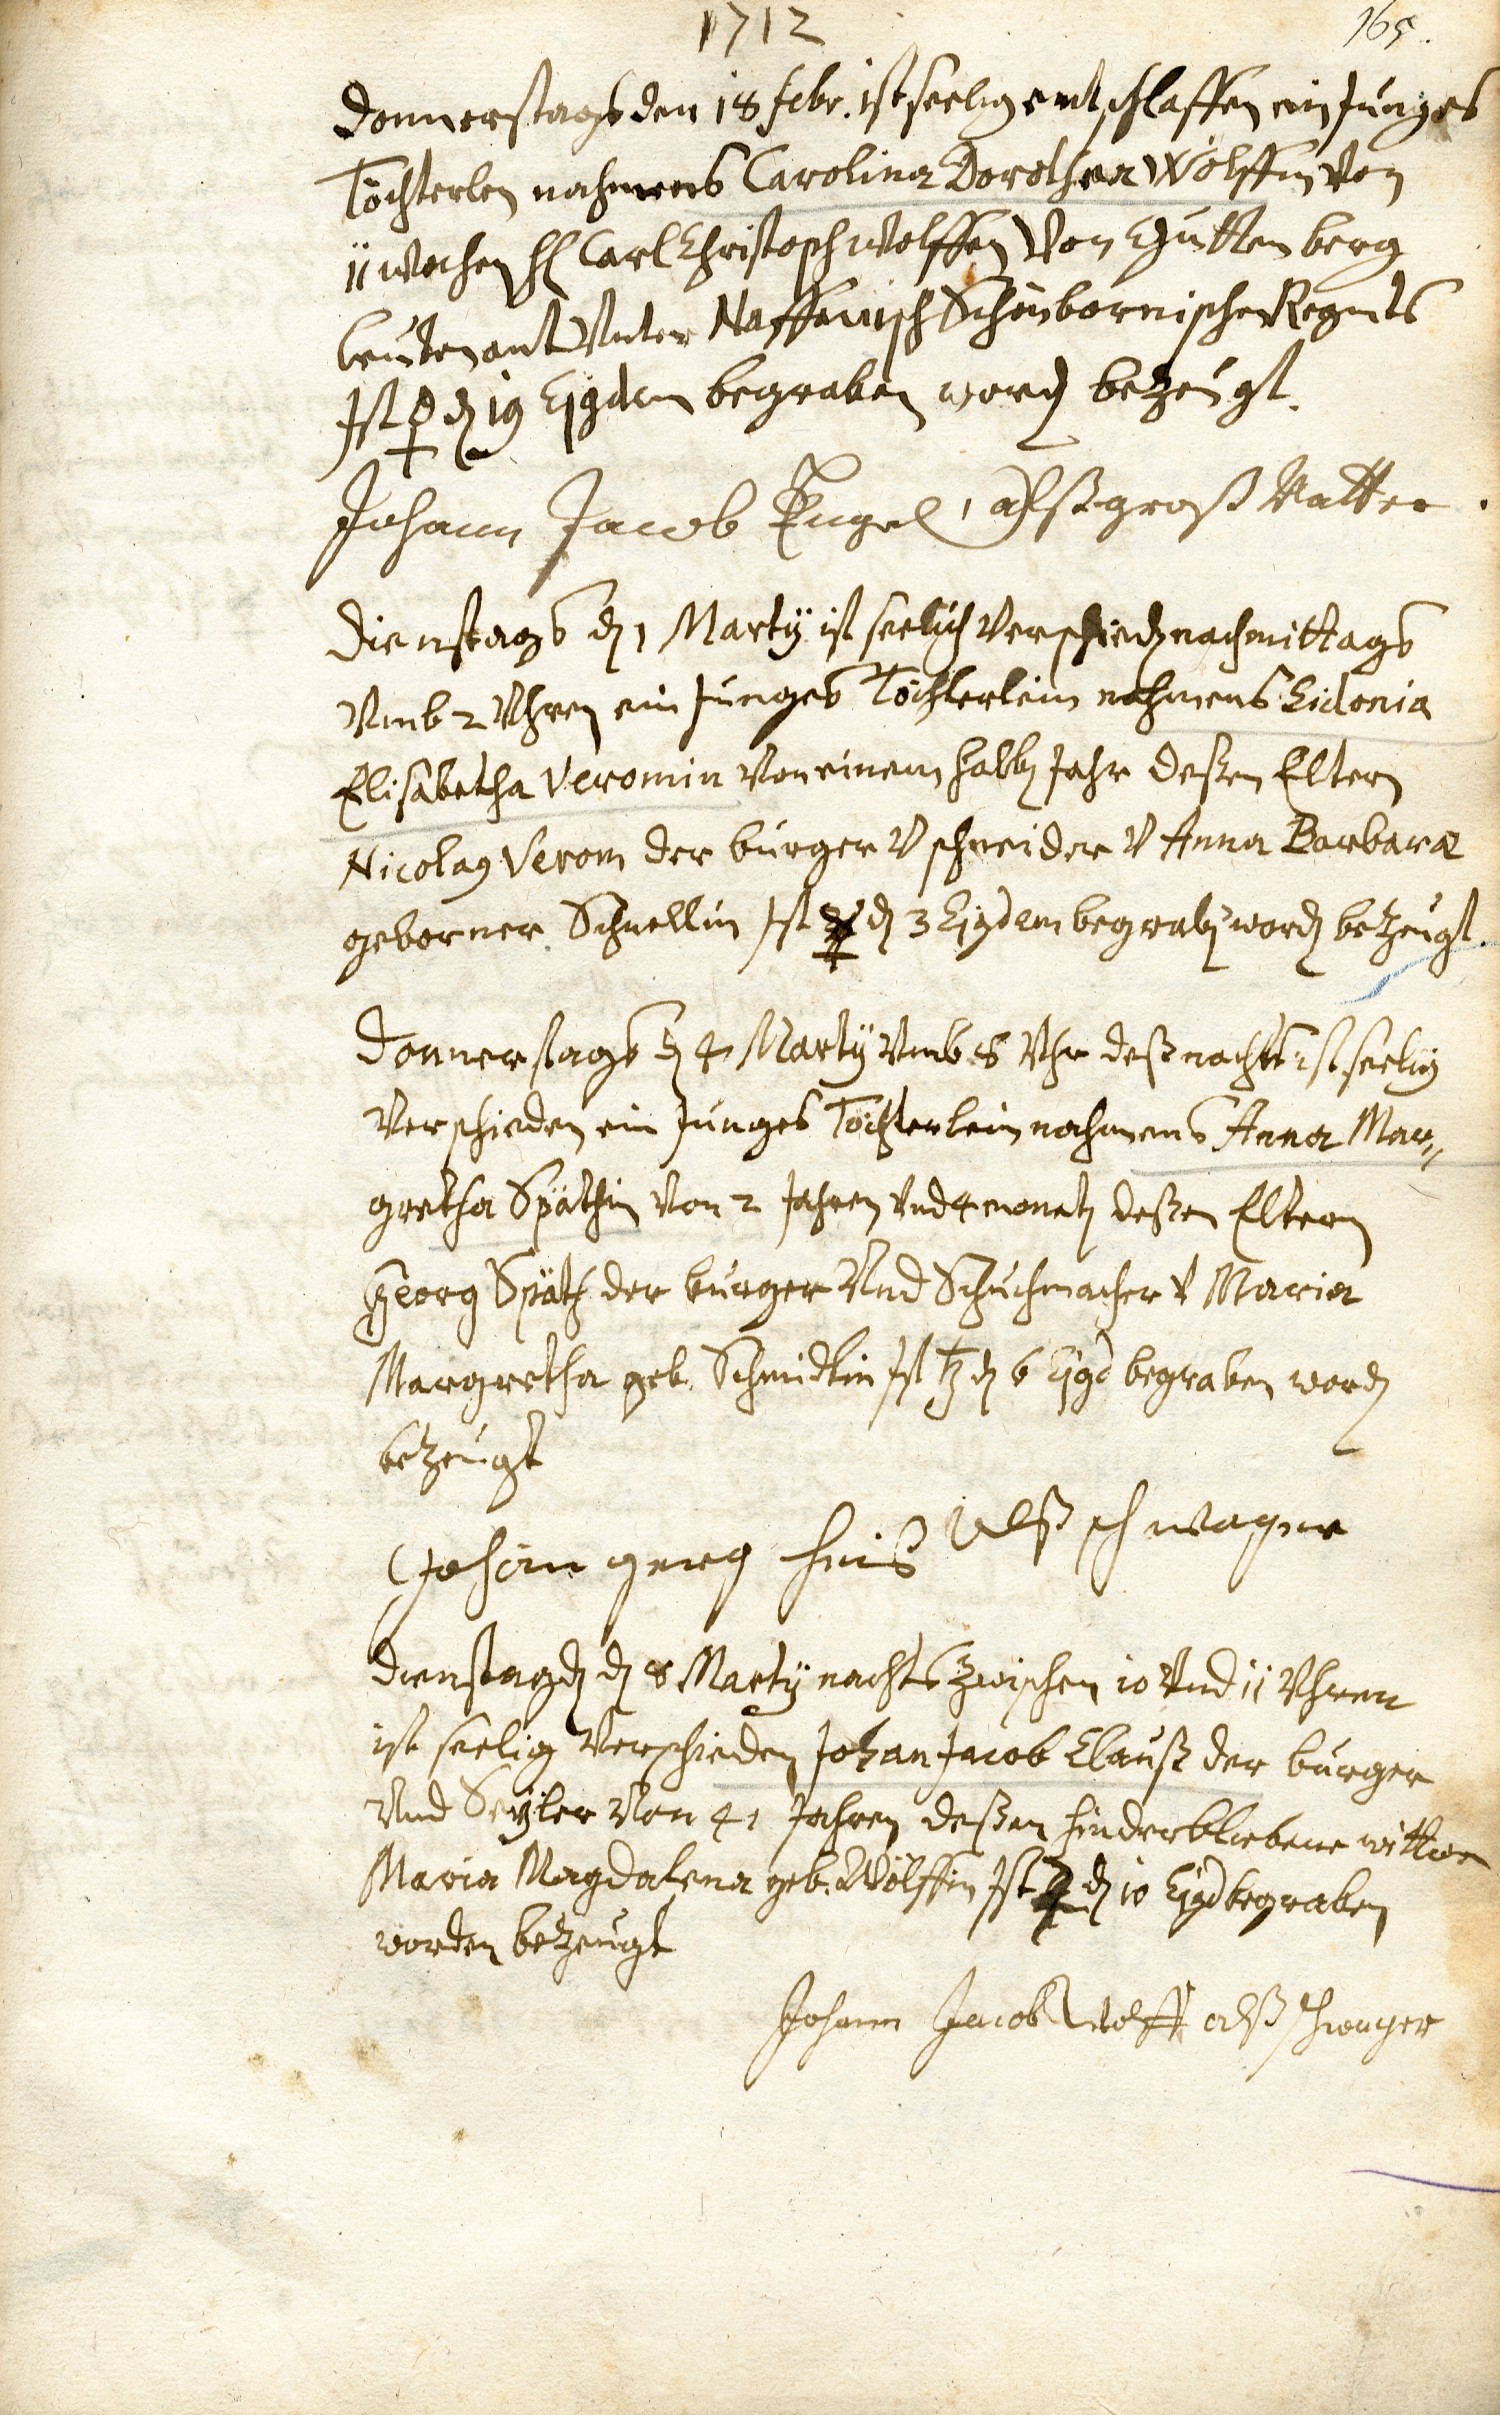 1712
165.
Donnerstags den 18 febr. ist seelig entschlaffen ein Junges
Töchterlen nahmens Carolina Dorothea Wölffin von
11 wochen H Carl Christoph Wolffen von Guttenberg
leutenant Unter Nassauisch Schönbornische Regmts
Ist ♀ dn 19 Ejgdem begraben word bezeugt.
Johann Jacob Engel, alß groß Vatter.
Dienstags dn 1 Martij ist seelich verschied nachmittags
Vmb 2 Vhren ein Junges Töchterlein nahmens Sidonia
Elisabetha Veromin von einem halb Jahr deßen Eltern
Nicolaq Verom der burger V schneider V Anna Barbara
geborner Schnellin Ist dn 3 Ejgdem begrab word bezeugt.
Donnerstags dn 4 Martij Vmb 8 Vhr deß nachts ist seelig
Verschieden ein Junges Töchterlein nahmens Anna Mar-
gretha Späthin von 2 Jahren Vnd 4 monath deßen Eltern
Georg Späth der burger Vnd Schuchmacher V Maria
Margretha geb. Schmidtin Ist ♄ dn 6 Ejgd begraben word
bezeugt
Johan georg alß schwager
Dienstagß dn 8 Martij nachts zwischen 10 Vnd 11 Vhren
ist seelig Verschieden Johan Jacob Clauß der burger
Vnd Seyler von 41 Jahren deßen hinderbliebene wittwe
Maria Magdalena geb. Wölffin Ist dn 10 Ejgd begraben
worden bezeugt
Johann Jacob Wolff alß schwager